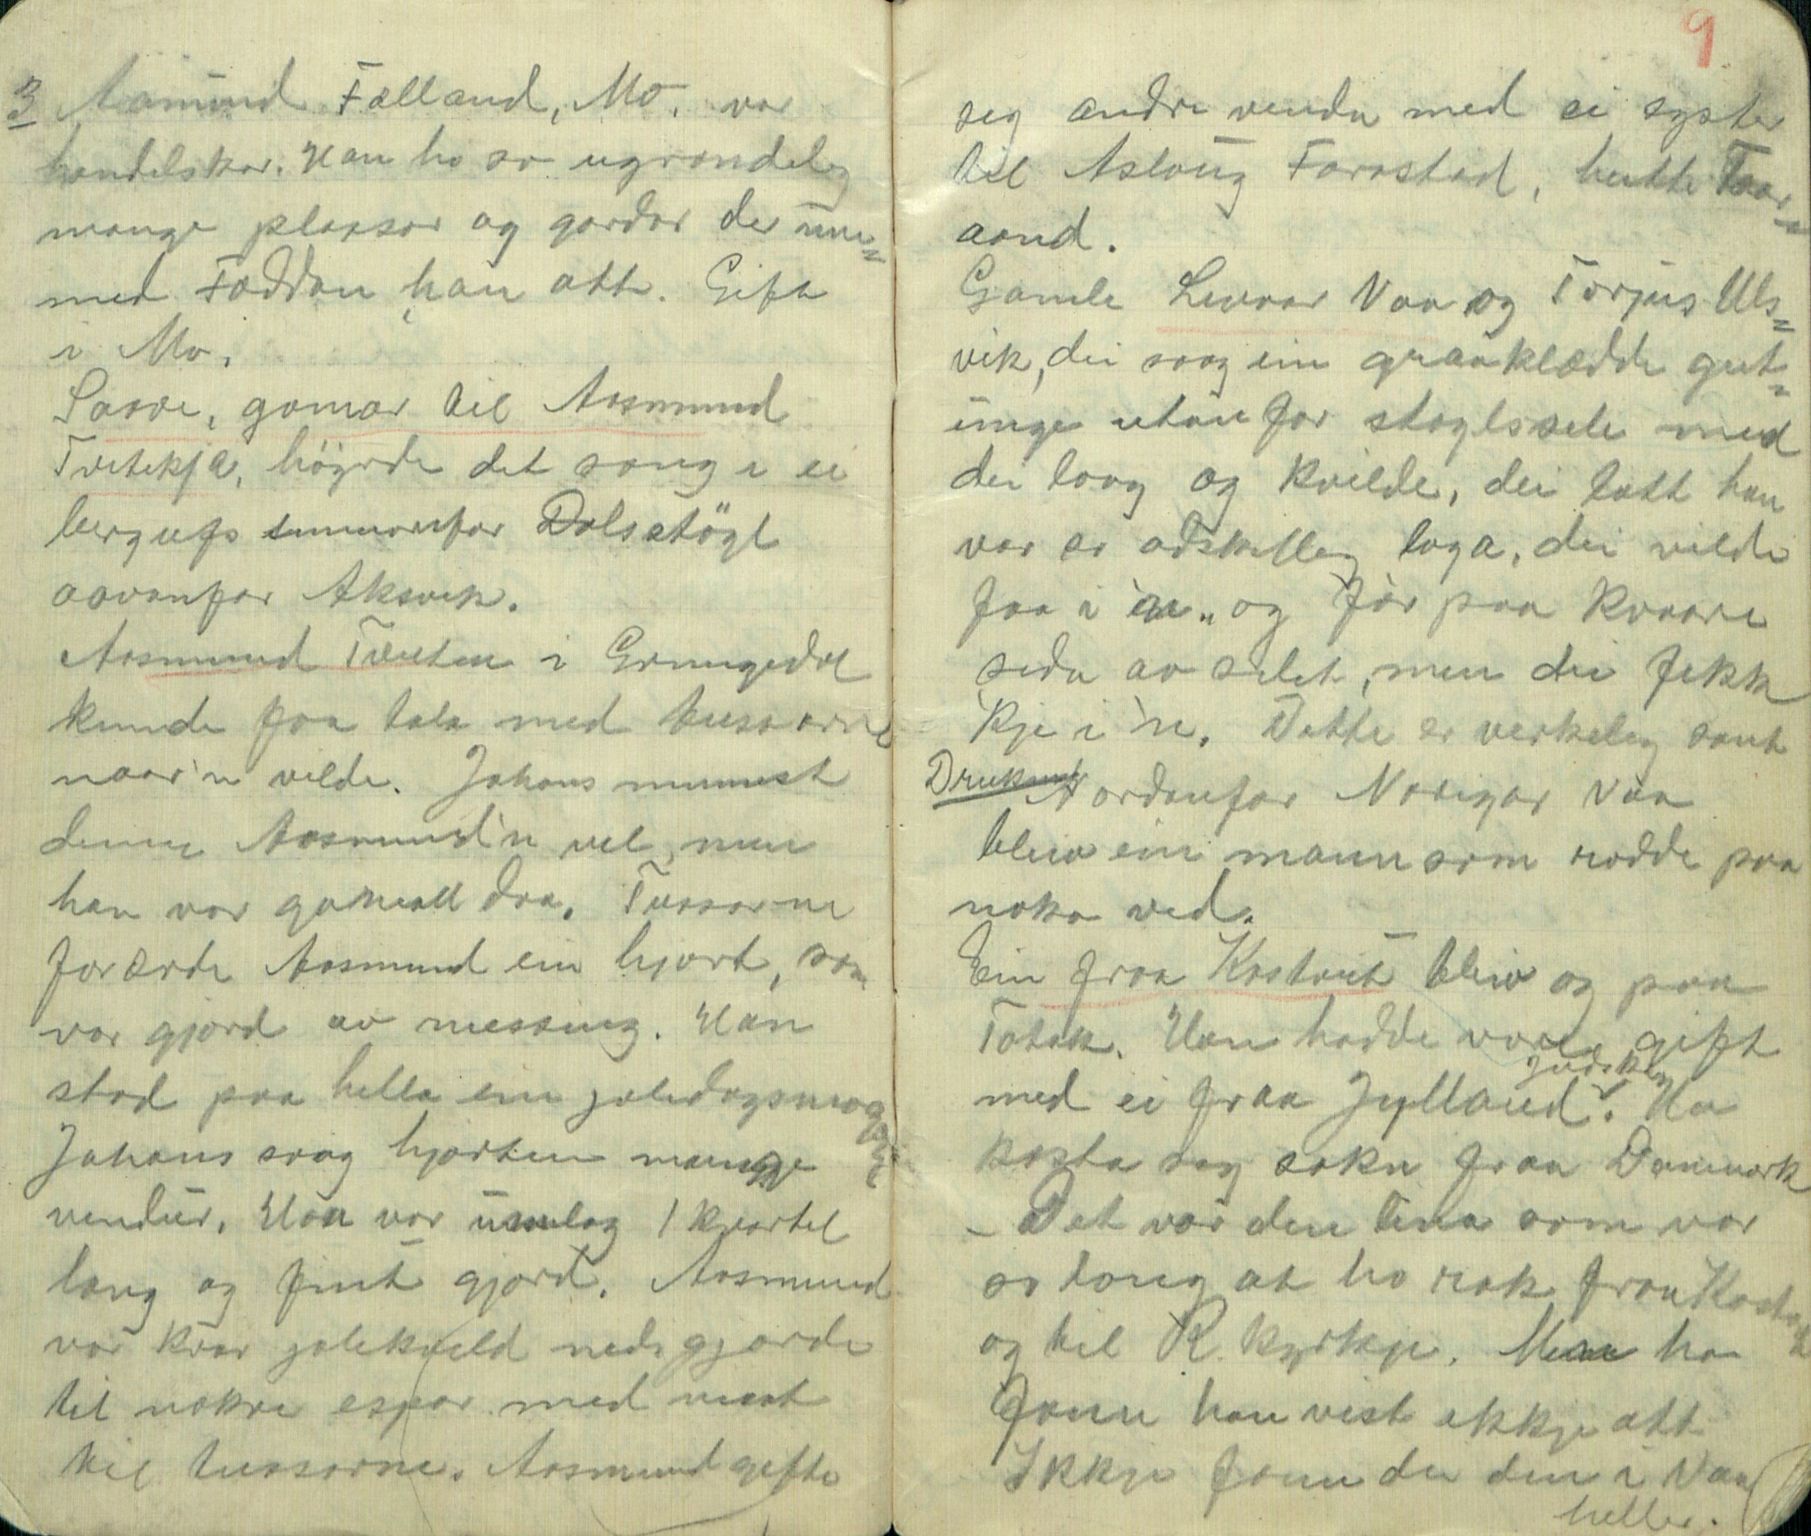 3 Aamund Felland, Mo. var
handelskar. Han ha so ugrondeleg
mange plassar og gardar der inne=
med Foddan han att. Gift
i Mo.
Saave, gamar til Aasmund
Tveitekjæ, höyrde det saang i ei
bergufs innanfor Dalsstögl
aavanfor Aksvik.
Aasmund Tveiten i Grungedal
kunde faa tala med tussarne
naar'n vilde. Johans munnest
denne Aasmund'n vel, men
han var gamall daa. Tussarne
forærde Aasmund ein hjort, som
var gjord av messing. Han
stod paa hella ein joledagsmorg
Johans saag hjorten mange
vendur. Han var umlag 1 kvartel
lang og fint gjord. Aasmund
var kvar jolekveld neds gjorde
til nokre espar med maat
til tussarne. Aasmund gifte
9
seg andre venda med ei syster
til Aslaug Farastad, heitte Taar=
aand.
Gamle Levaar Vaa og Torjus Uls=
vik, dei saag ein graaklædde gut=
unge utanfor stoglssele med
dei laag og kvilde, dei tatt han
var so adskilleg laga, dei vilde
faa i 'n og før paa kvaare
sida av selet, men dei fekk
kje i 'n. Dette er verkeleg sant
Druknet
Nordanfor Norigar Vaa
bleiv ein mann som rodde paa
noko ved.
Ein fraa Kostveit bleiv og paa
Totak. Han hadde vore gift
med ei fraa Jylland. Ha
judsk
kosta seg sokn fraa Danmark
- Det var den lina som var
so long at ho rak fraa Kost
og til R. kyrkje. Men ho
fann han vist ikkje att
Ikkje fann dei den i Vaa
heller.